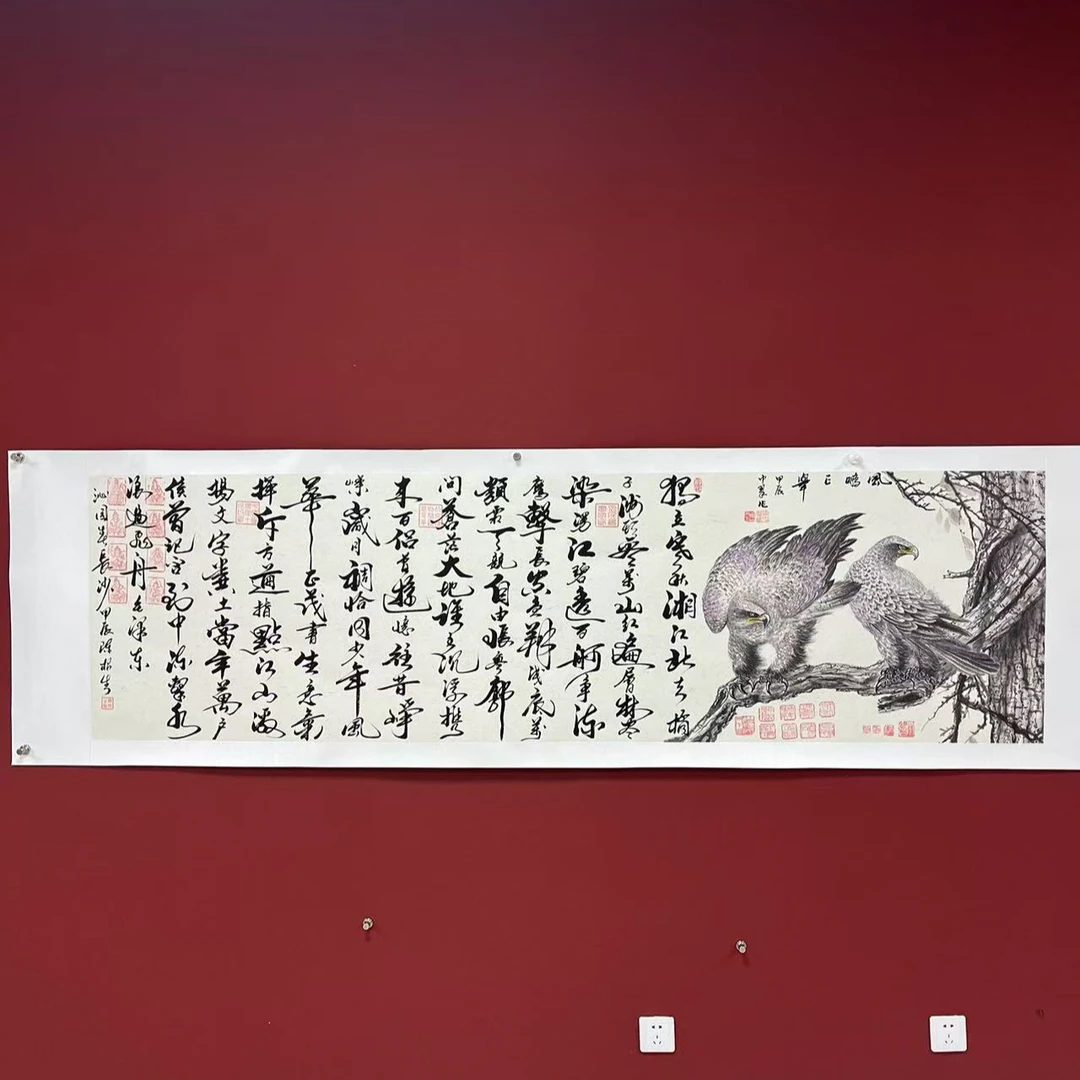 風鵬正舉
甲辰
獨立寒秋湘江北去橘
子洲頭看萬山紅遍層林盡
染漫江碧透百舸爭流
鷹擊長空魚翔淺底萬
類霜天競自由悵寥廓
問蒼茫大地誰主沉浮攜
來百侶曾遊憶往昔崢
嶸歲月稠恰同少年風
華正茂書生意氣
揮斥方遒指點江山激
揚文字糞土當年萬戶
侯曾記否到中流擊水
浪遏飛舟毛澤東
沁園春長沙甲辰